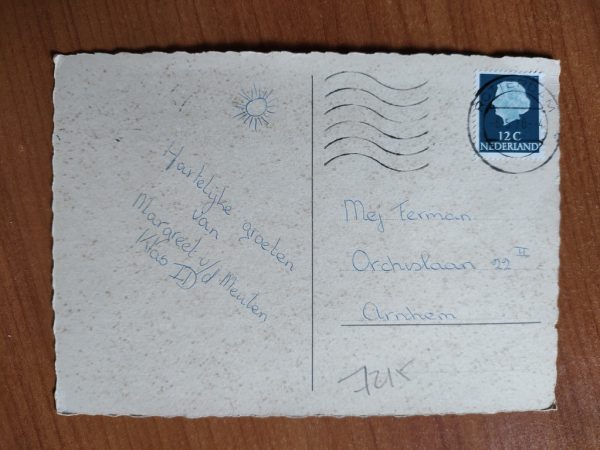 Hartelijke groeten
van
Margreet v/d Meulen
Klas ID
12 C
NEDERLAND
Mej Ferman
Orchislaan 22 II
Arnhem